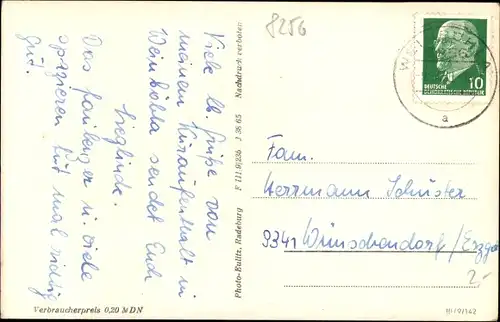 8256
Viele lb. Grüße von
meinem Kuraufenthalt in
Weinböhla sendet Euch
Sieglinde.
Das faulenzen u. viele
spazieren tut mal richtig
gut!
Verbraucherpreis 0,20 MDN
Photo-Eulitz, Radeburg F 111/9/235 1 36 65 Nachdruck verboten
DEUTSCHE
DEMOKRATISCHE REPUBLIK
10
a
Fam.
Herrmann Schuster
9341 Wünschendorf/Erzgeb.
2,-
III/9/142